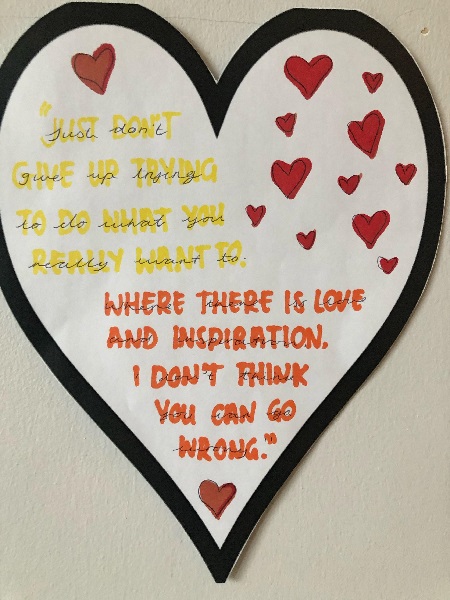 "JUST DON'T
GIVE UP TRYING
TO DO WHAT YOU
REALLY WANT TO.
WHERE THERE IS LOVE
AND INSPIRATION.
I DON'T THINK
YOU CAN GO
WRONG."